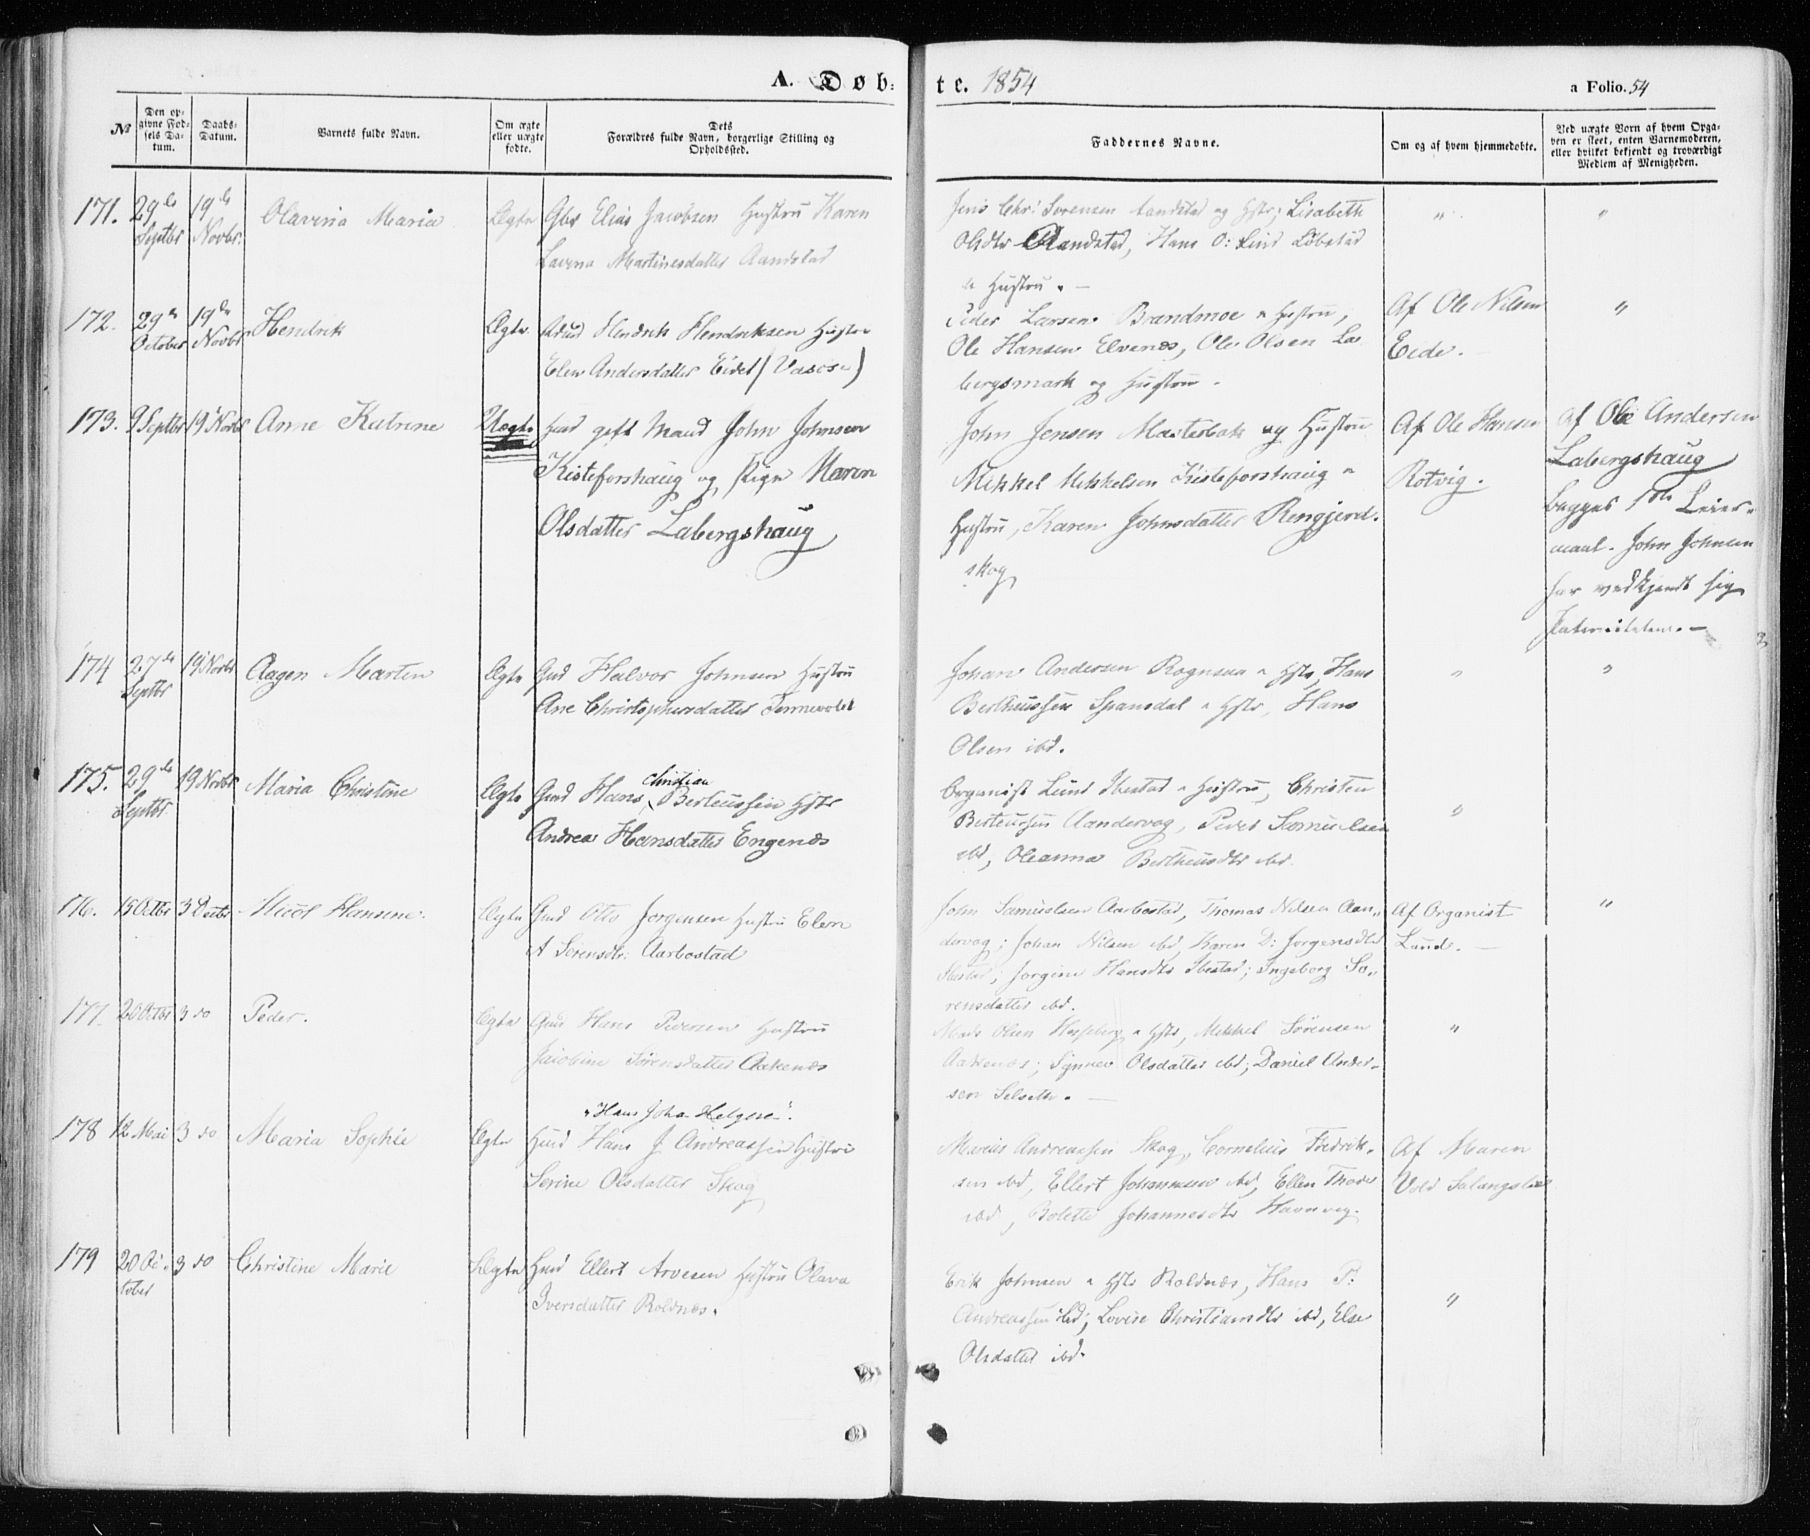 A. Døb:
te. 1854
a Folio. 54
No
Den opgivne Fødsels Datum.
Daabs-Datum.
Barnets fulde Navn.
Om ægte eller uægte fødte.
Dets Forældres fulde Navn, borgerlige Stilling og Opholdssted.
Faddernes Navne.
Om og af hvem hjemmedøbte.
Ved uægte Born af hvem Opgaven er skeet, enten Barnemoderen, eller hvilket bekjendt og troværdigt Medlem af Menigheden.
171. 29de Septbr 19de Novbr. Olavina Maria Ægte Gbr Elias Jacobsen Hustru Karen
Lavina Martinesdatter Aandstad
Jens Chr: Sorensen Aandstad og Hstr: Lisabeth
Olsdtr Aandstad, Hans O: Lind Løbestad
n Hustru. —
" "
172. 29de October 19de Novbr Hendrik Ægte Hendrik Hendriksen Hustru
Elen Andersdatter Eidet (Vasøse)
Peder Larsen Brandmoe n Hustru,
Ole Hansen Elvenæs, Ole Olsen La
bergsmark og Hustru.
Af Ole Nilsen
Eide. —
"
173. 9 Septbr 19 Novbr Anne Katrine Uægte gift Mand John Johnsen
Kisteforshaug og Pige Maren
Olsdatter Labergshaug
John Jensen Masterbak og Hustru
Mikkel Mikkelsen Kisteforshaug n
Hustru, Karen Johnsdatter Rengjerd-
skog
Af Ole Hansen
Rotvig.
Af Ole Andersen
Labergshaug
begges 1ste Leier-
maal. John Johnsen
har vedkjendt sig
Paterniteten. —
174 27de Septbr 19 Novbr Aagen Martin Ægte Gmd Halvor Johnsen Hustru
Ane Christophersdatter Tennevolet
Johan Andersen Rognsaa n Hstr, Hans
Bertheussen Spansdal n Hstr, Hans
Olsen ibd.
" "
175. 29de Septbr 19 Novbr Maria Christine Ægte Gmd Hans Christian Berteussen Hstr
Andrea Hansdatter Engenæs
Organist Lund Ibestad n Hustru, Christen
Berteussen Aandervog, Peder Samuelsen
ibd, Oleanna Bertheusdtr ibd.
"
176. 15 Octbr 3 Decbr Nicol Hansine. Ægte Gmd Otto Jørgensen Hustru Elen
A Sørensdtr: Aarbostad
John Samuelsen Aarbostad, Thomas Nilsen Aan-
dervog; Johan Nilsen ibd, Karen D: Jørgensdtr
Ibestad; Jorgine Hansdtr Ibestad; Ingeborg Sø-
rensdatter ibd.
Af Organist
Lund. —
"
177. 20 Octbr 3 do Peder. Ægte Gmd Hans Pedersen Hustru
Jacobine Sørensdatter Aakenæs
Mads Olsen n Hstr, Mikkel Sørensen
Aakenæs; Synnev Olsdatter ibd; Daniel Ander-
sen Selseth. —
"
178 12 Mai 3 do Maria Sophie Ægte "Hans Joha Helgesen".
Hmd Hans J Andreassen Hustru
Serine Olsdatter Skog
Marius Andreassen Skog, Cornelius Fredrik-
sen ibd, Ellert Johannesen ibd, Ellen Thores
ibd, Bolette Johannesdtr Havnvog.
Af Maren
Vold Salangslien
179 20 October 3 do Christine Marie Ægte Hmd Ellert Arvesen Hustru Olava
Iversdatter Roldnæs.
Erik Johnsen n Hstr Roldnæs, Hans P:
Andreassen ibd; Lovise Christiansdtr ibd, Else
Olsdatter ibd.
"